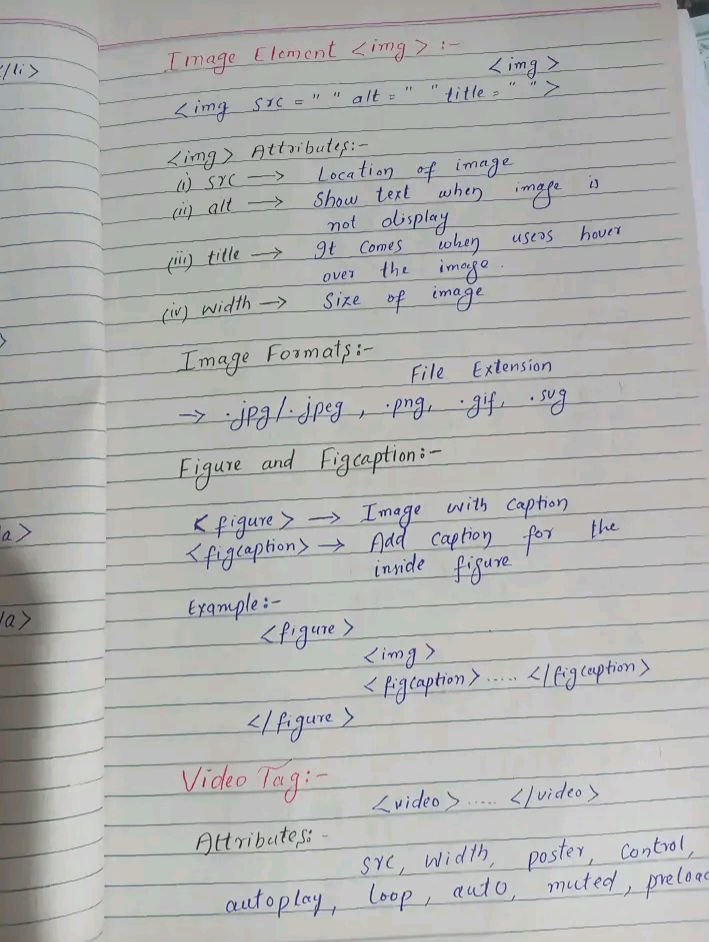 /li>
a>
/a>
Image Element <img> :-
<img>
<img src = " " alt = " " title = " ">
<img> Attributes:-
(i) src → Location of image
(ii) alt → Show text when image is
not display
(iii) title → It comes when users hover
over the image.
(iv) width → Size of image
Image Formats:-
File Extension
→ .jpg/.jpeg, .png, .gif, .svg
Figure and Figcaption:-
<figure> → Image with caption
<figcaption> → Add caption for the
inside figure
Example:-
<figure>
<img>
<figcaption> ..... </figcaption>
</figure>
Video Tag:-
<video> ..... </video>
Attributes:-
src, width, poster, control,
autoplay, loop, auto, muted, preloa